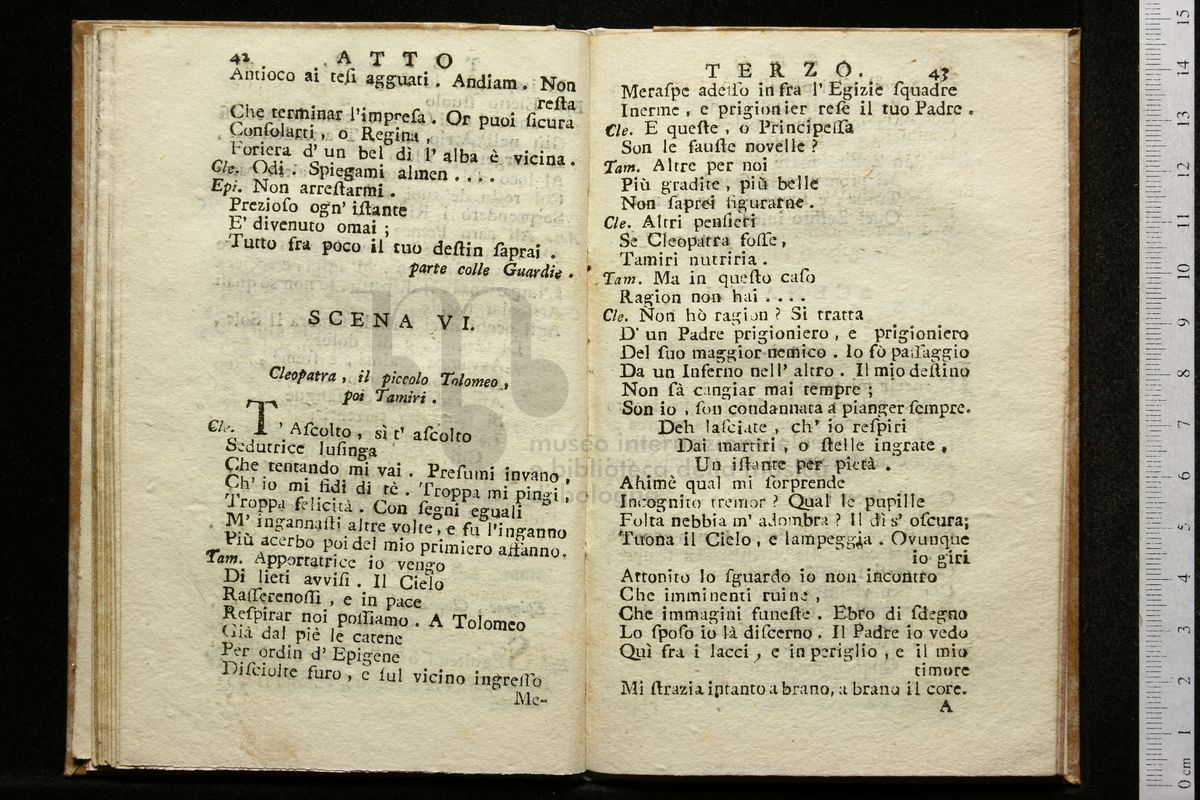 42 ATTO
Antioco ai teſi agguati. Andiam. Non
reſta
Che terminar l'impreſa. Or puoi ſicura
Conſolarti, o Regina,
Foriera d'un bel dì l'alba è vicina.
Cle. Odi. Spiegami almen....
Epi. Non arreſtarmi.
Prezioſo ogn' iſtante
E' divenuto omai;
Tutto fra poco il tuo deſtin ſaprai.
parte colle Guardie.
SCENA VI.
Cleopatra, il piccolo Tolomeo,
poi Tamiri.
Cle. T' Aſcolto, sì t' aſcolto
Sedutrice luſinga
Che tentando mi vai. Preſumi invano,
Ch' io mi fidi di tè. Troppa mi pingi,
Troppa felicità. Con ſegni eguali
M' ingannaſti altre volte, e fu l'inganno
Più acerbo poi del mio primiero affanno.
Tam. Apportatrice io vengo
Di lieti avviſi. Il Cielo
Raſſerenoſſi, e in pace
Reſpirar noi poſſiamo. A Tolomeo
Già dal piè le catene
Per ordin d' Epigene
Diſciolte furo, e ſul vicino ingreſſo
Me-
TERZO. 43
Meraſpe adeſſo in fra l' Egizie ſquadre
Inerme, e prigionier reſe il tuo Padre.
Cle. E queſte, o Principeſſa
Son le fauſte novelle?
Tam. Altre per noi
Più gradite, più belle
Non ſaprei figurarne.
Cle. Altri penſieri
Se Cleopatra foſſe,
Tamiri nutriria.
Tam. Ma in queſto caſo
Ragion non hai....
Cle. Non hò ragion? Si tratta
D' un Padre prigioniero, e prigioniero
Del ſuo maggior nemico. Io fò paſſaggio
Da un Inferno nell' altro. Il mio deſtino
Non ſà cangiar mai tempre;
Son io, ſon condannata a pianger ſempre.
Deh laſciate, ch' io reſpiri
Dai martiri, o ſtelle ingrate,
Un iſtante per pietà.
Ahimè qual mi ſorprende
Incognito tremor? Qual le pupille
Folta nebbia m' adombra? Il dì s' oſcura;
Tuona il Cielo, e lampeggia. Ovunque
io giri
Attonito lo ſguardo io non incontro
Che imminenti ruine,
Che immagini funeſte. Ebro di ſdegno
Lo ſpoſo io là diſcerno. Il Padre io vedo
Quì fra i lacci, e in periglio, e il mio
timore
Mi ſtrazia intanto a brano, a brano il core.
A